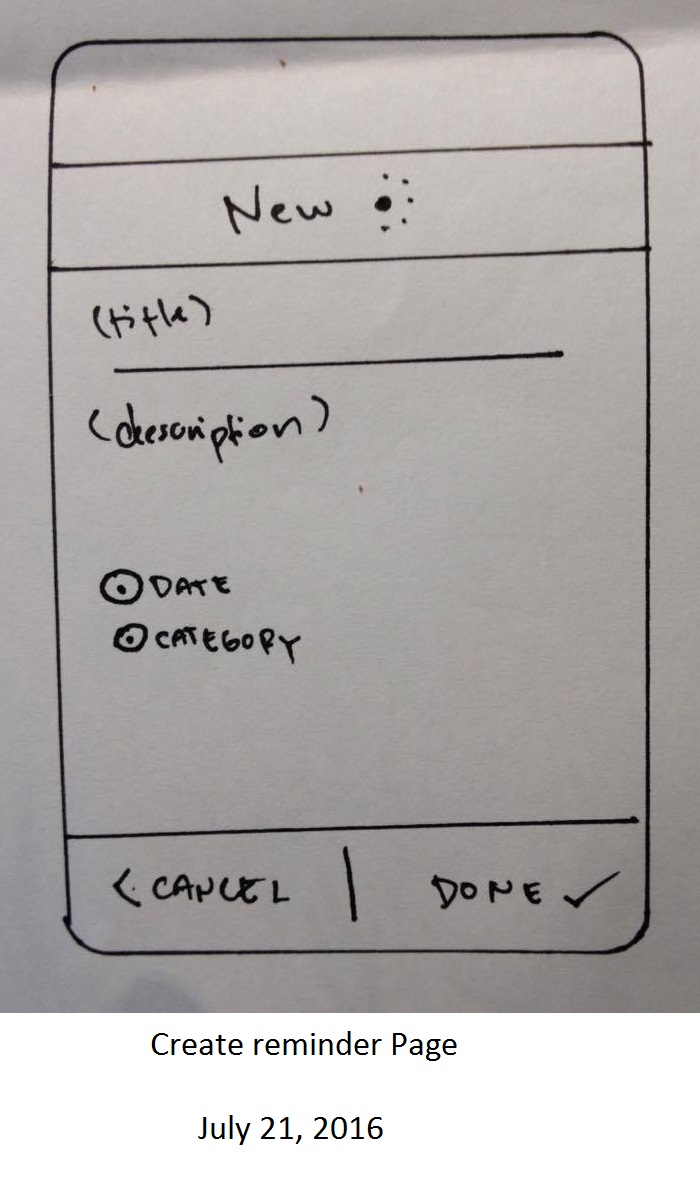 New
(title)
(description)
DATE
CATEGORY
< CANCEL | DONE ✓
Create reminder Page
July 21, 2016